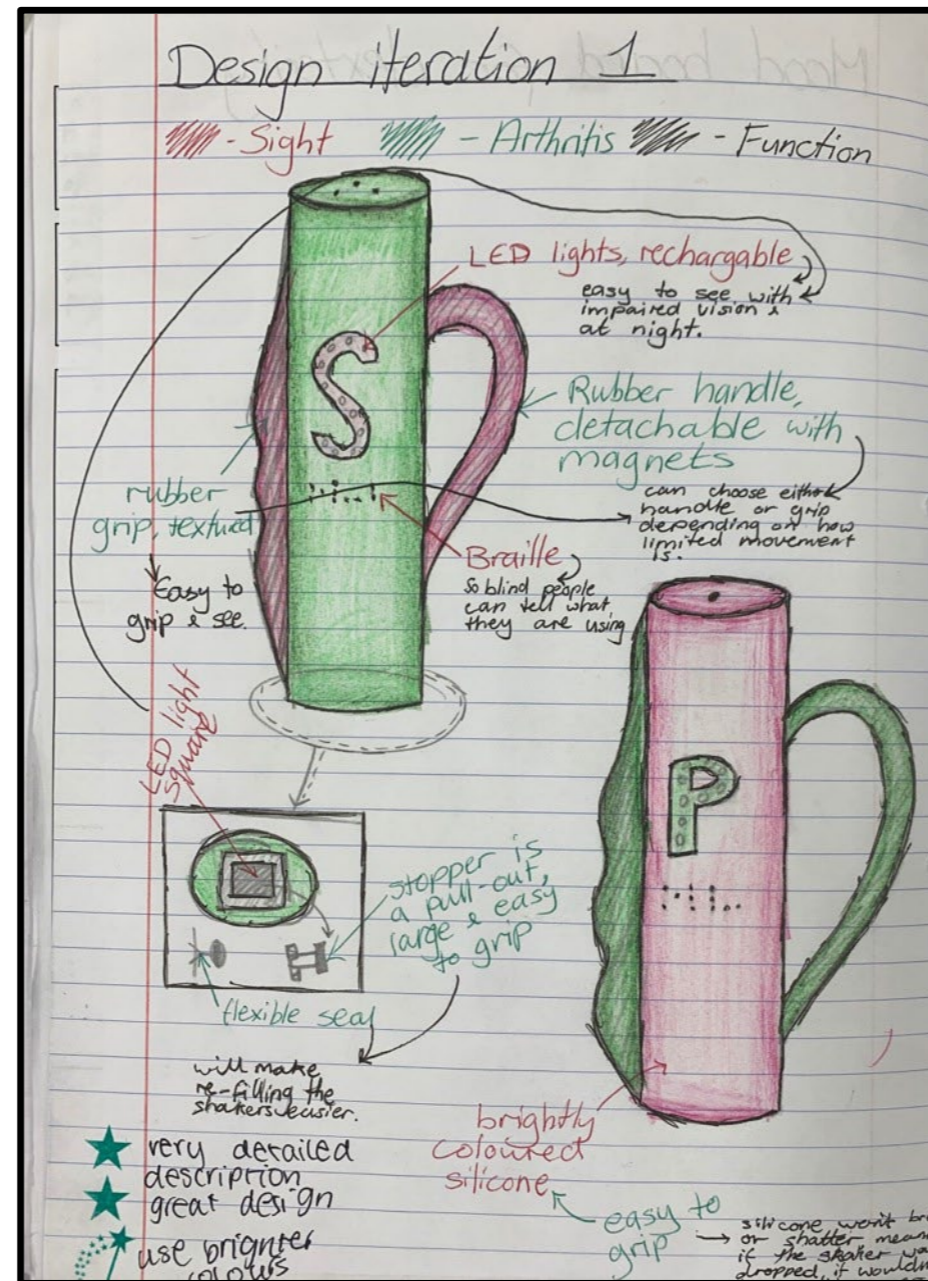 Design iteration 1
- Sight
- Arthritis
- Function
LED lights, rechargable
easy to see with
impaired vision &
at night.
S
Rubber handle,
detachable with
magnets
can choose either
handle or grip
depending on how
limited movement
is.
rubber
grip, textured
Easy to
grip & see.
Braille
So blind people
can tell what
they are using
LED light
square
P
stopper is
a pull-out,
large & easy
to grip
flexible seal
will make
re-filling the
shakers easier.
brightly
coloured
silicone
easy to
grip
silicone won't
or shatter
if the shaker
dropped, if
very detailed
description
great design
use brighter
colours